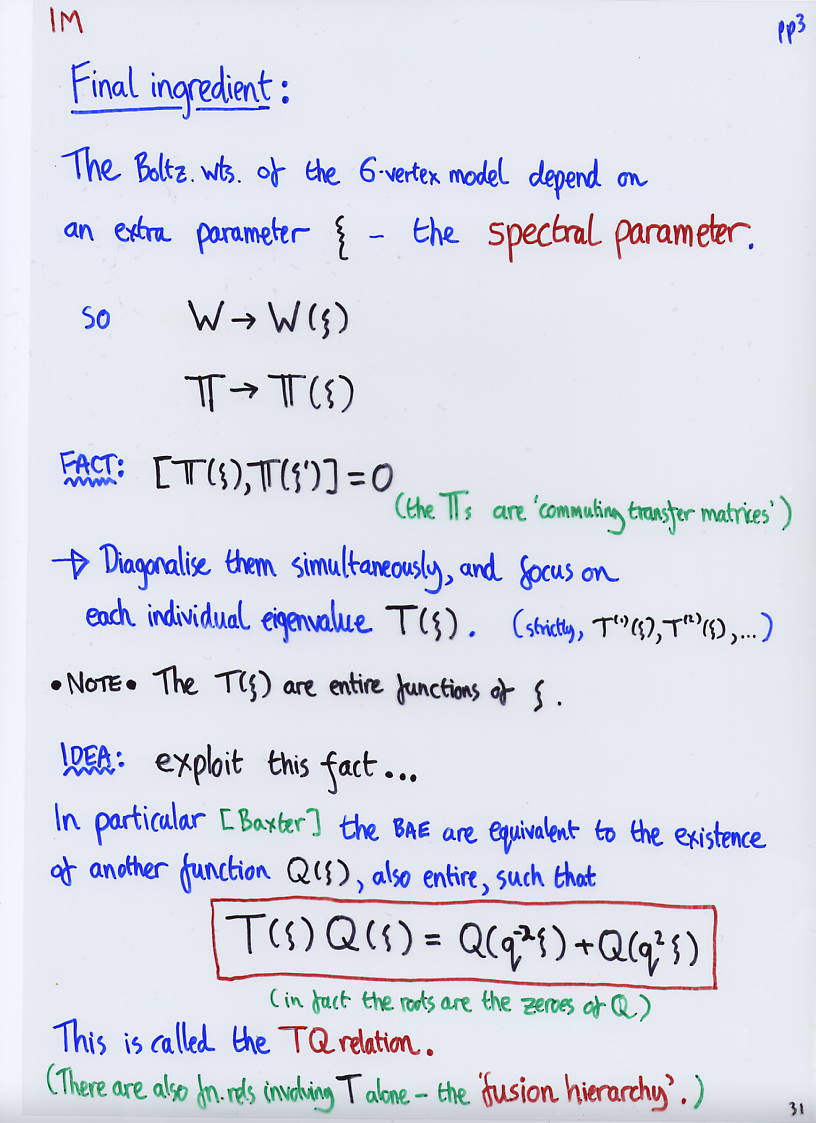 IM
pp3
Final ingredient:
The Boltz. wts. of the 6-vertex model depend on
an extra parameter ξ – the spectral parameter.
so W → W(ξ)
𝕋 → 𝕋(ξ)
FACT: [𝕋(ξ),𝕋(ξ')] = 0
(the 𝕋s are 'commuting transfer matrices')
→ Diagonalise them simultaneously, and focus on
each individual eigenvalue T(ξ). (strictly, T⁽¹⁾(ξ),T⁽²⁾(ξ),...)
• NOTE • The T(ξ) are entire functions of ξ.
IDEA: exploit this fact...
In particular [Baxter] the BAE are equivalent to the existence
of another function Q(ξ), also entire, such that
T(ξ) Q(ξ) = Q(q⁻²ξ) + Q(q²ξ)
(in fact the roots are the zeroes of Q)
This is called the TQ relation.
(There are also fn. rels involving T alone – the 'fusion hierarchy'.)
31